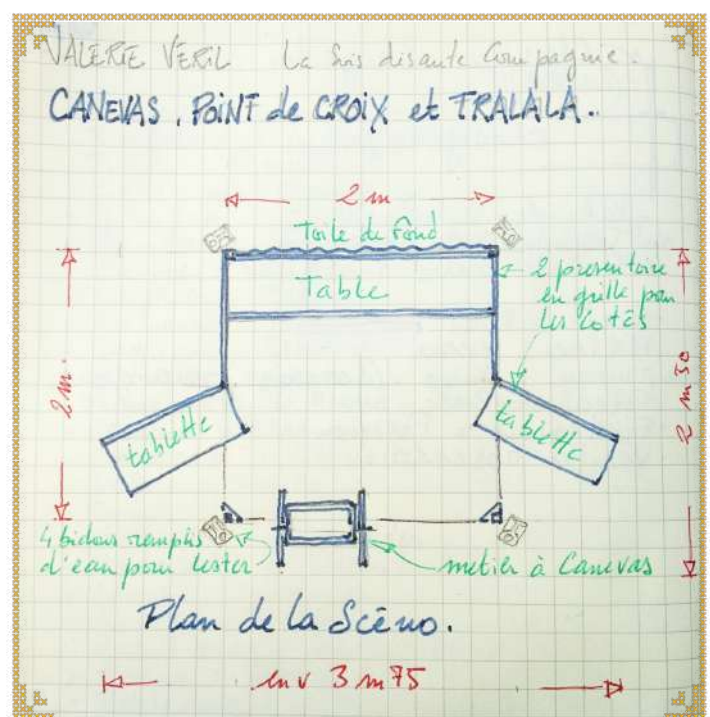 VALERIE VERIL La Sois disante Compagnie.
CANEVAS, POINT de CROIX et TRALALA.
2 m
Toile de Fond
Table
2 presentoire
en grille pour
les cotés
2 m.
2 m 30
tablette
tablette
4 bidons remplis
d'eau pour lester
metier à Canevas
Plan de la Scéno.
env 3 m 75